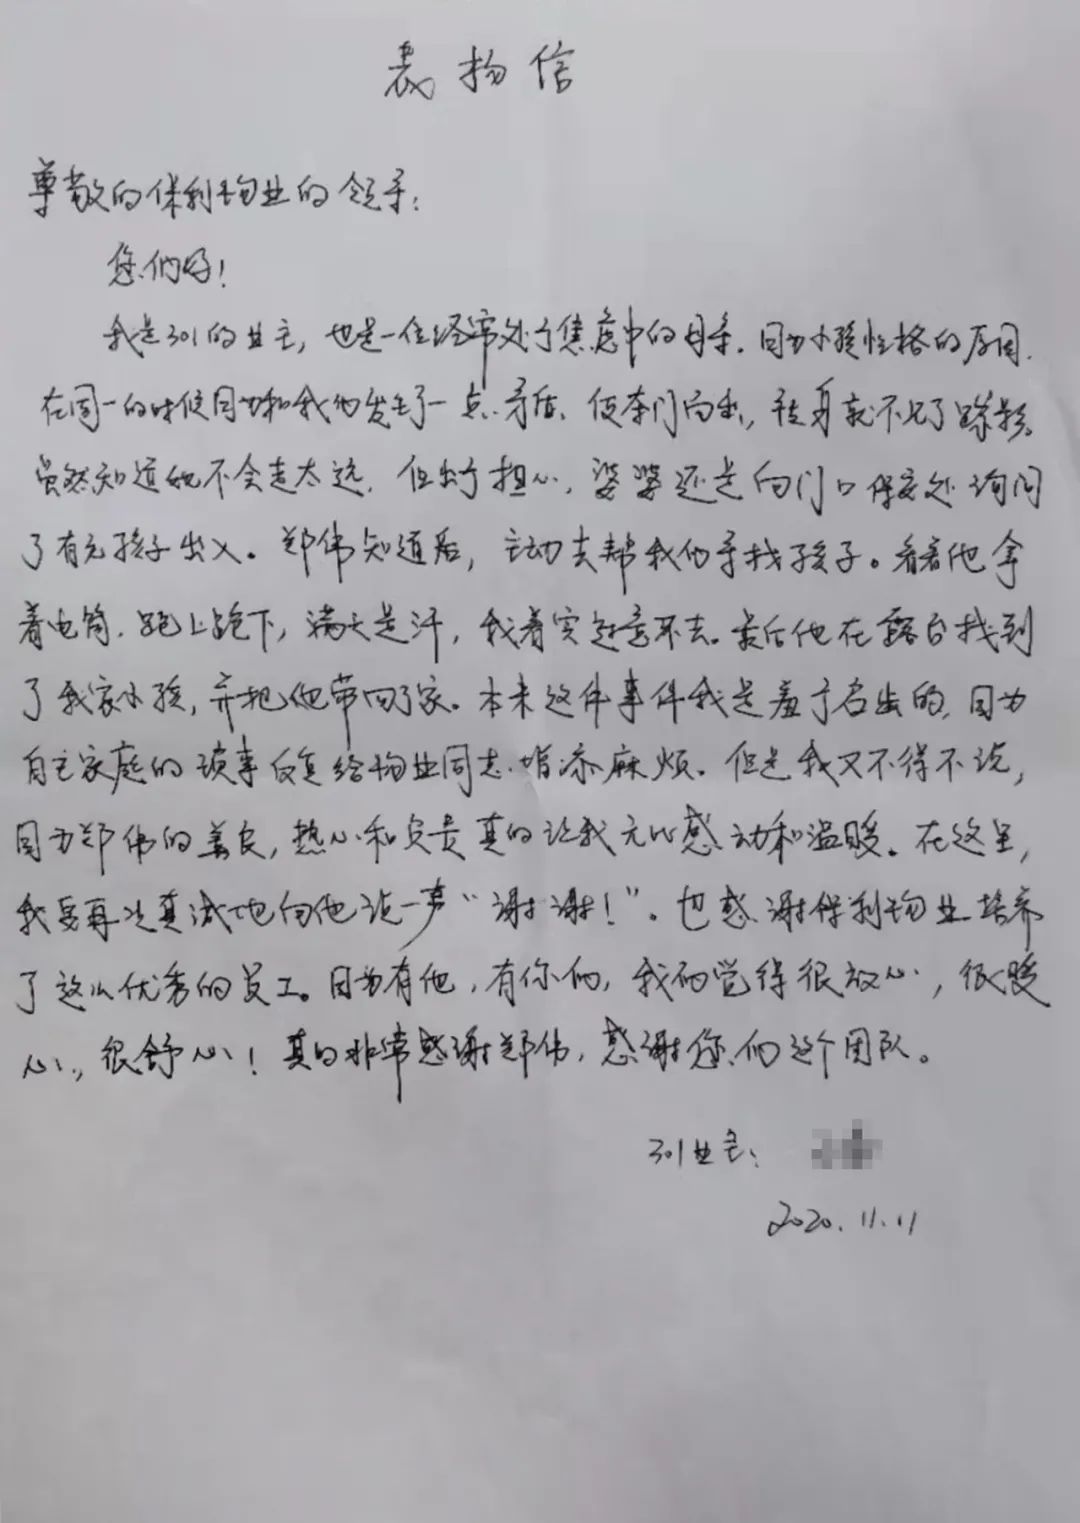 表扬信
尊敬的保利物业的领导：
您们好！
我是301的业主，也是一位经常处于焦虑中的母亲．因为小孩性格的原因．
在周一的时候因为和我们发生了一点矛盾．便夺门而出，转身就不见了踪影．
虽然知道她不会走太远．但出于担心，婆婆还是向门口保安处询问
了有无孩子出入。郑伟知道后，主动去帮我们寻找孩子。看着他拿
着电筒．跑上跑下，满头是汗，我着实过意不去．最后他在露台找到
了我家小孩，并把他带回了家。本来这件事件我是羞于启齿的．因为
自己家庭的琐事反复给物业同志增添麻烦．但是我又不得不说，
因为郑伟的善良，热心和负责真的让我无比感动和温暖．在这里，
我要再次真诚地向他说一声“谢谢！”．也感谢保利物业培养
了这么优秀的员工。因为有他，有你们，我们觉得很放心，很暖
心，很舒心！真的非常感谢郑伟，感谢您们这个团队。
301业主：
2020.11.11